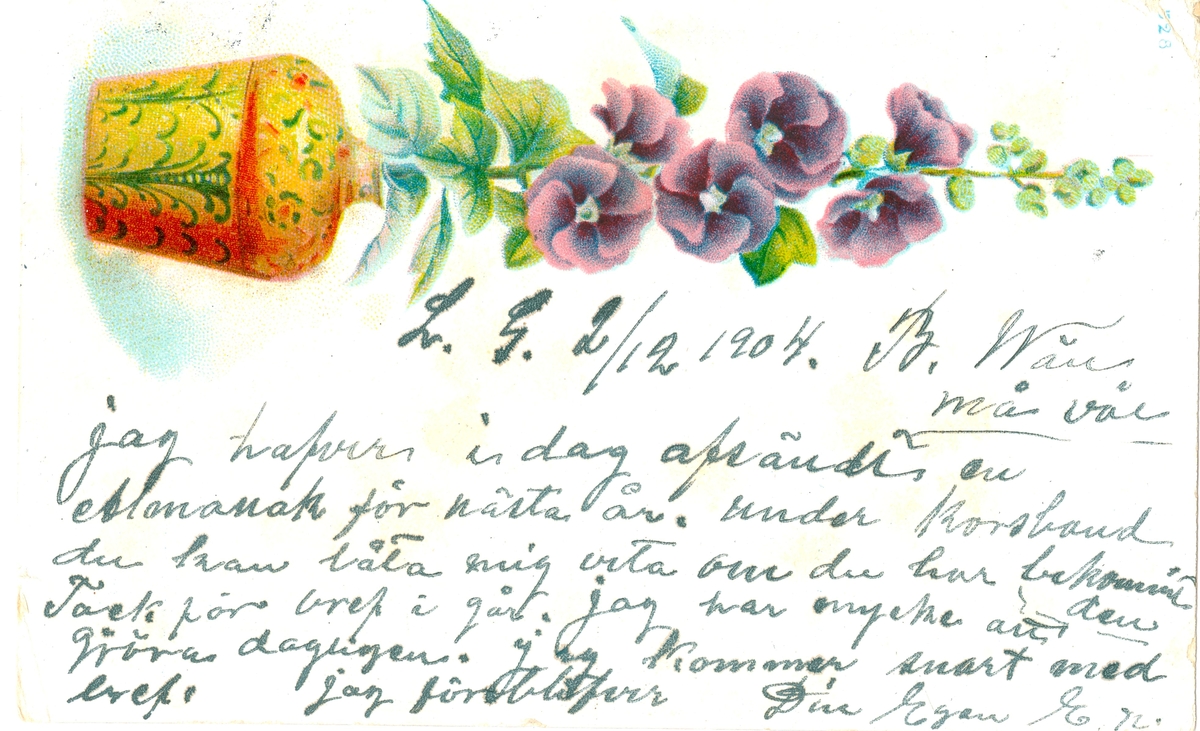 L. G. 2/12 1904. B. Wän
må väl
jag hafver idag afsändt en
Almanak för nästa år. under Korsband
du kan låta mig veta om du har bekommit
den
Tack för bref i går. jag har mycke att
gjöra dagligen. jag kommer snart med
bref. jag föreblifver Din Egen E. N.
528